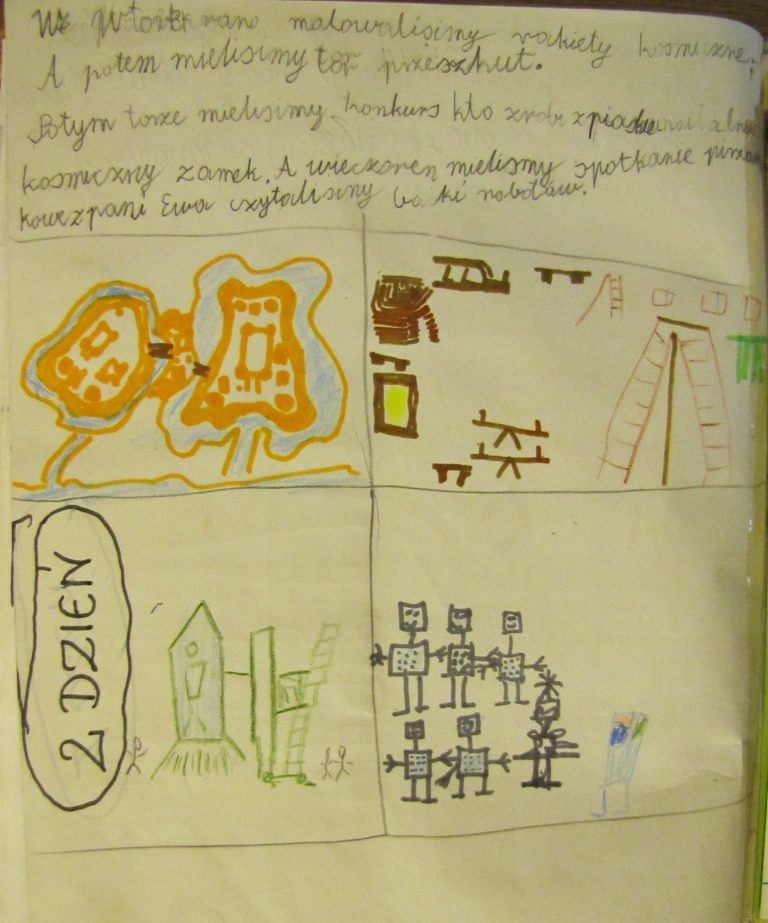 We Wtorek rano malowalisimy rakiety kosmiczne.
A potem mielisimy tor przeszkut.
Potym torze mielisimy konkurs kto zrobi zpiasku
kosmiczny zamek. A wieczorem mielismy spotkanie
kowe zpani Ewa czytalisimy bajki robotów.
2 DZIEŃ